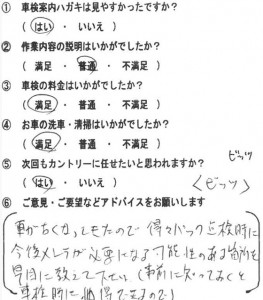 ① 車検案内ハガキは見やすかったですか?
( はい ・ いいえ )
② 作業内容の説明はいかがでしたか?
( 満足 ・ 普通 ・ 不満足 )
③ 車検の料金はいかがですか?
( 満足 ・ 普通 ・ 不満足 )
④ お車の洗車・清掃はいかがですか?
( 満足 ・ 普通 ・ 不満足 )
⑤ 次回もカントリーに任せたいと思われますか?
ビッツ
( はい ・ いいえ )
<ビッツ>
⑥ ご意見・ご要望などアドバイスをお願いします
動かなくなってもたので 得々パック点検時に
今後メンテが必要になる可能性のある箇所を
早目に教えて下さい(事前に知っておくと
車検時に 得できるので)